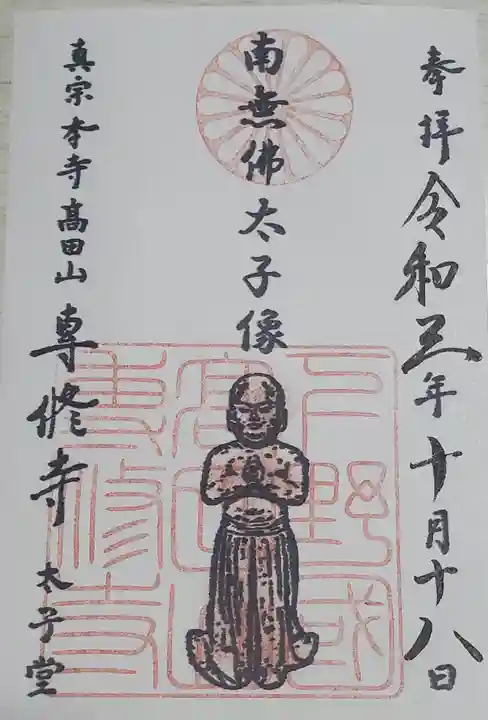 奉拝 令和三年十月十八日
南無佛太子像
真宗本寺高田山 専修寺 太子堂
下野國
高田山
専修寺